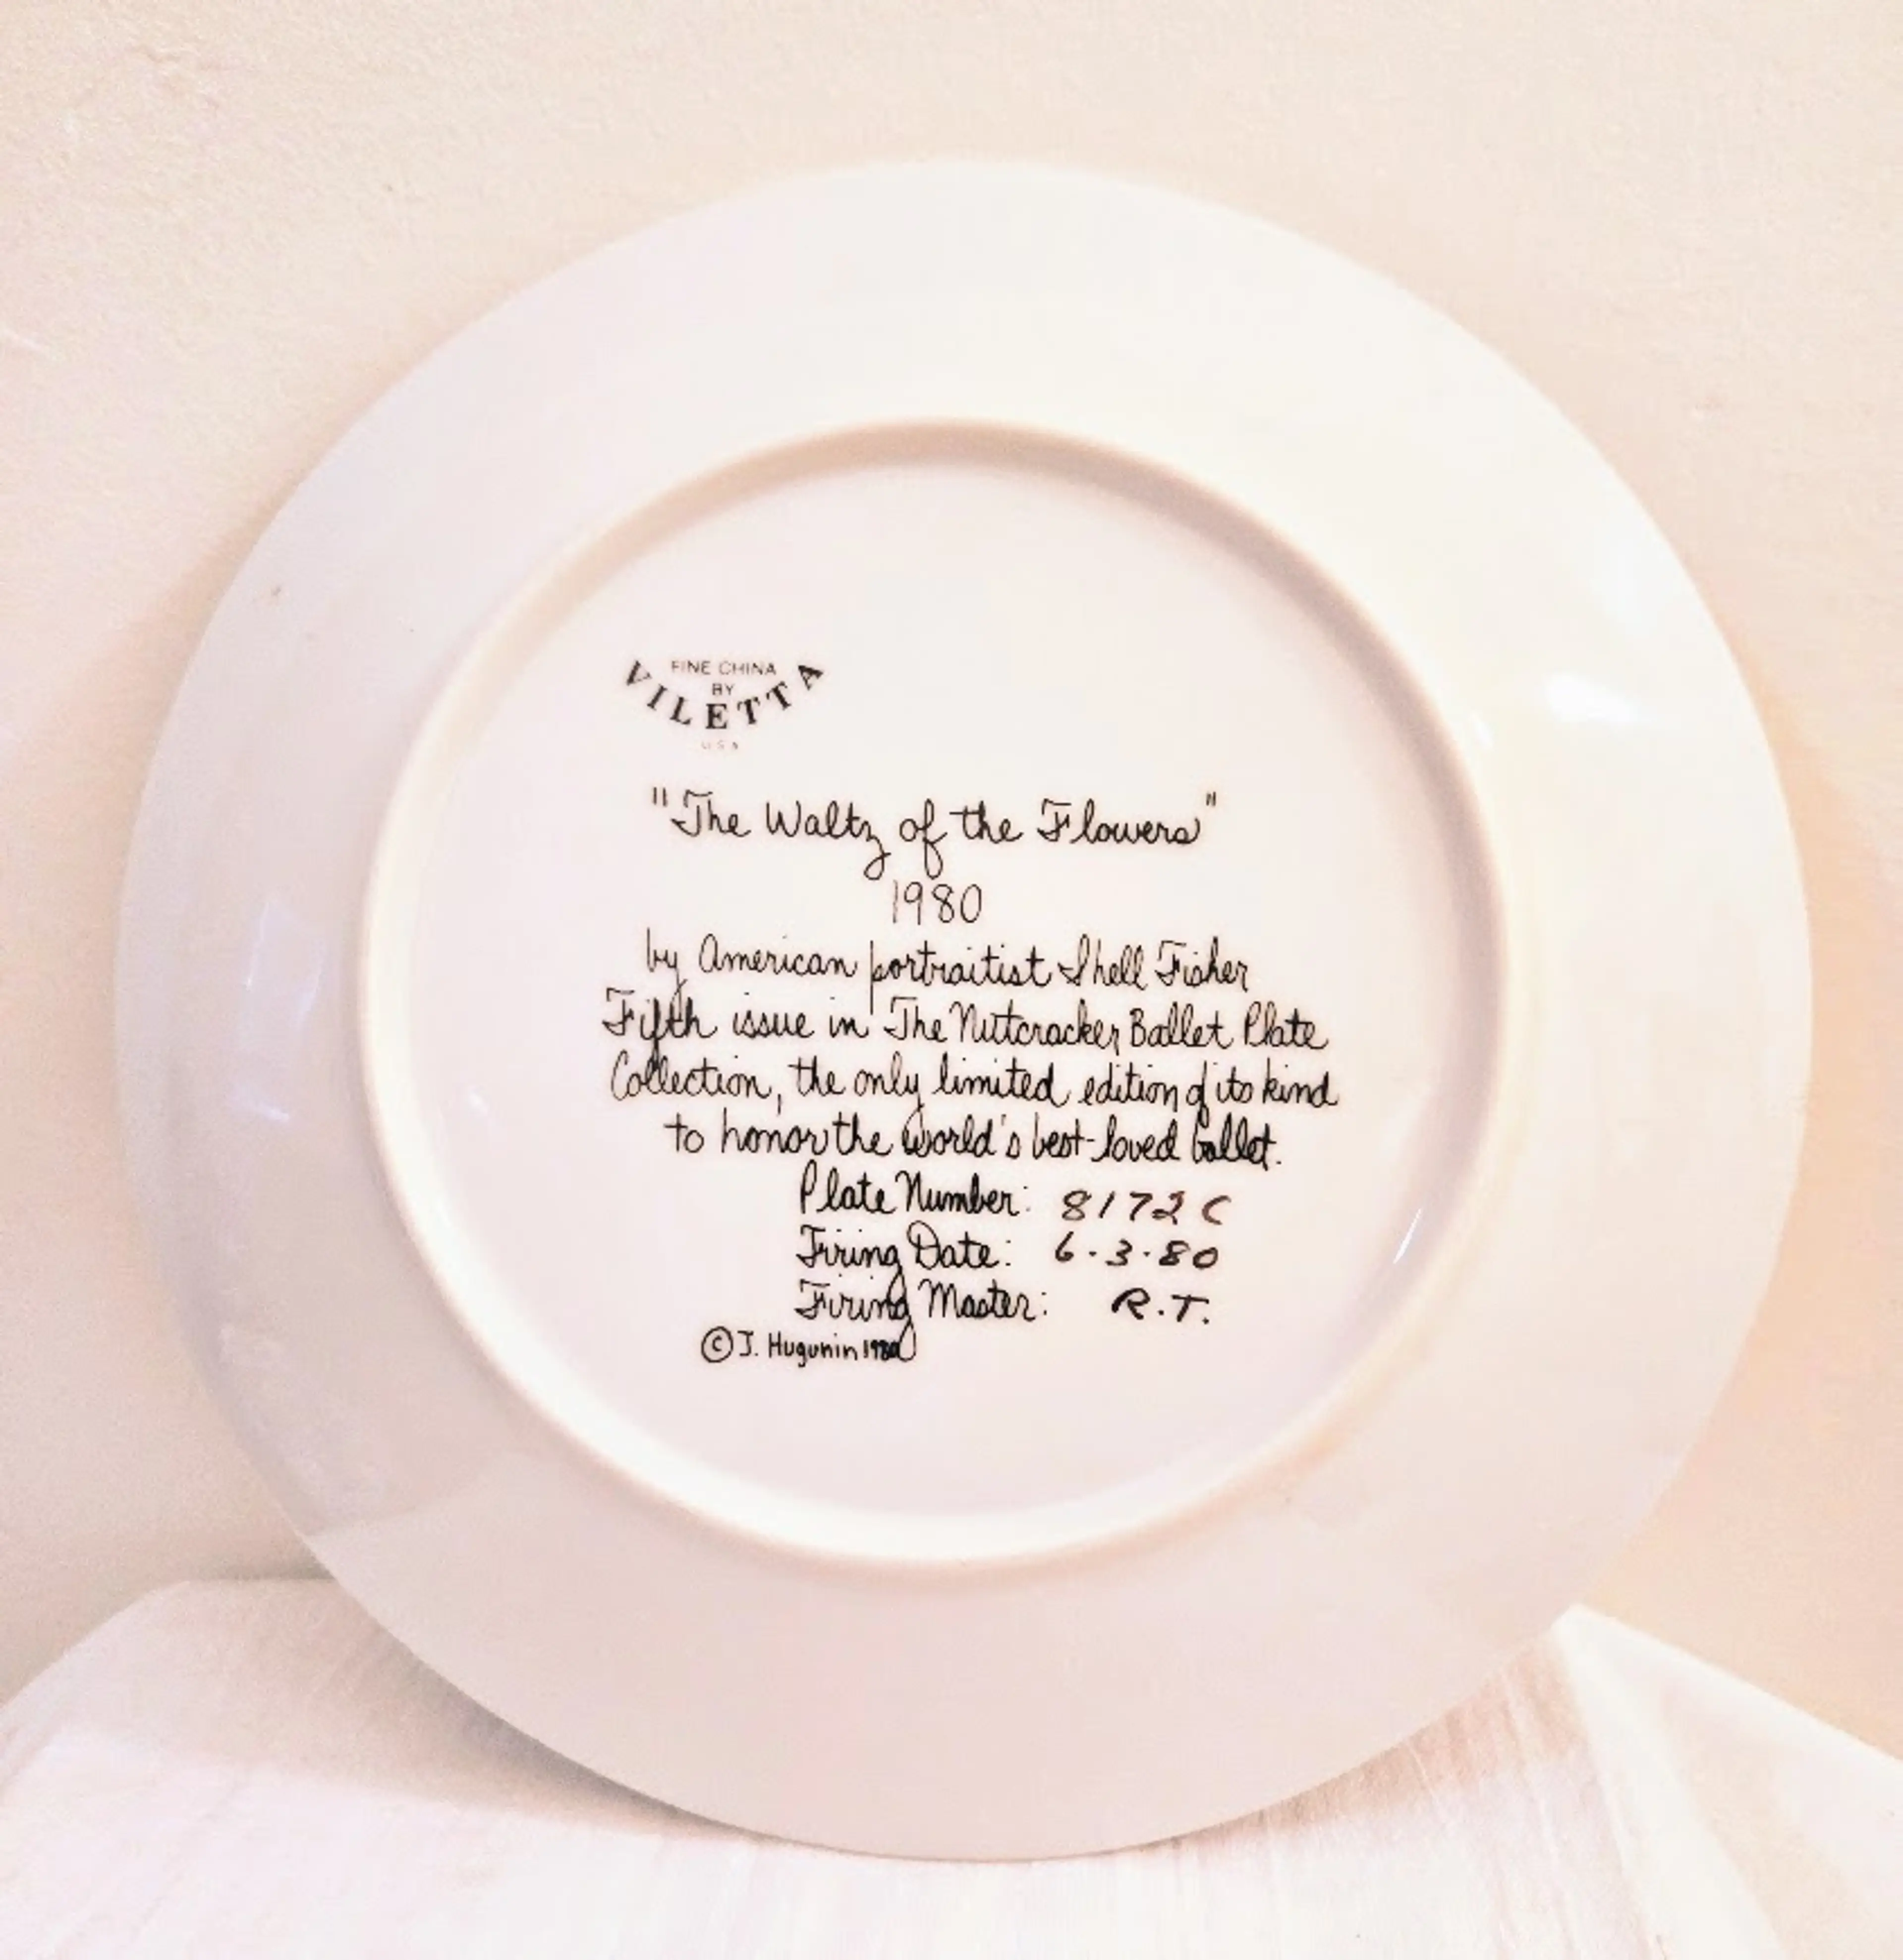 FINE CHINA
BY
VILETTA
USA
"The Waltz of the Flowers"
1980
by American portraitist Shell Fisher
Fifth issue in The Nutcracker Ballet Plate
Collection, the only limited edition of its kind
to honor the world's best-loved ballet.
Plate Number: 8172 C
Firing Date: 6·3·80
Firing Master: R.T.
© J. Hugunin 1980